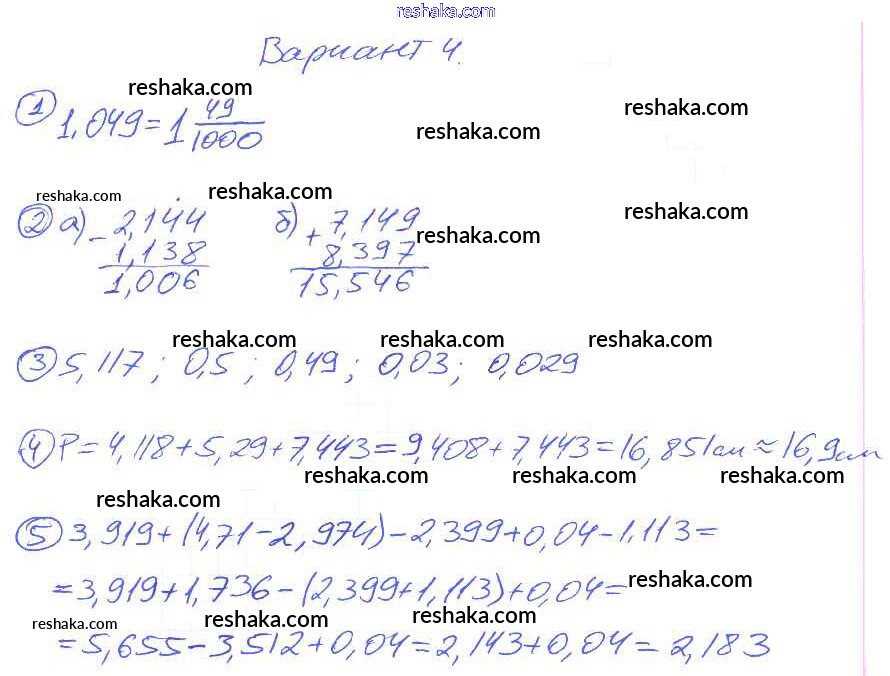 reshaka.com
Вариант 4.
reshaka.com
① 1,049 = 1 49/1000
reshaka.com
reshaka.com
reshaka.com
reshaka.com
reshaka.com
② а) - 2,144 б) + 7,149
reshaka.com
1,138 8,397
1,006 15,546
reshaka.com reshaka.com reshaka.com
③ 5,117; 0,5; 0,49; 0,03; 0,029
④ P = 4,118 + 5,29 + 7,443 = 9,408 + 7,443 = 16,851см ≈ 16,9см
reshaka.com reshaka.com reshaka.com
reshaka.com
⑤ 3,919 + (4,71 - 2,974) - 2,399 + 0,04 - 1,113 =
= 3,919 + 1,736 - (2,399 + 1,113) + 0,04 =
reshaka.com
reshaka.com reshaka.com reshaka.com
= 5,655 - 3,512 + 0,04 = 2,143 + 0,04 = 2,183